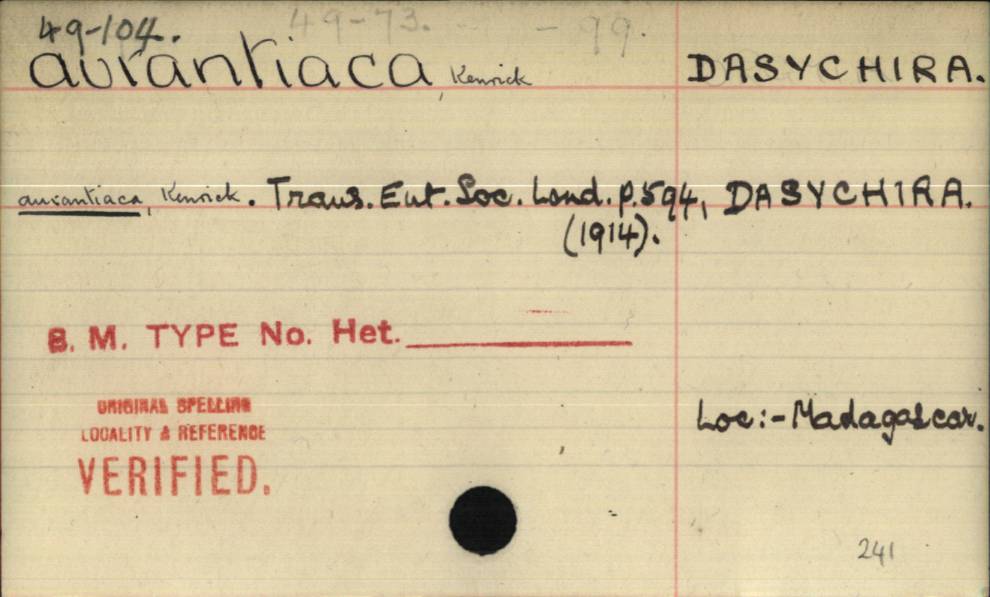 49-104. 49-73. - 99.
aurantiaca, Kenrick DASYCHIRA.
aurantiaca, Kenrick. Trans. Ent. Soc. Lond. p.594, DASYCHIRA.
(1914).
B. M. TYPE No. Het.
ORIGINAL SPELLING
LOCALITY & REFERENCE
VERIFIED.
Loc:- Madagascar.
241